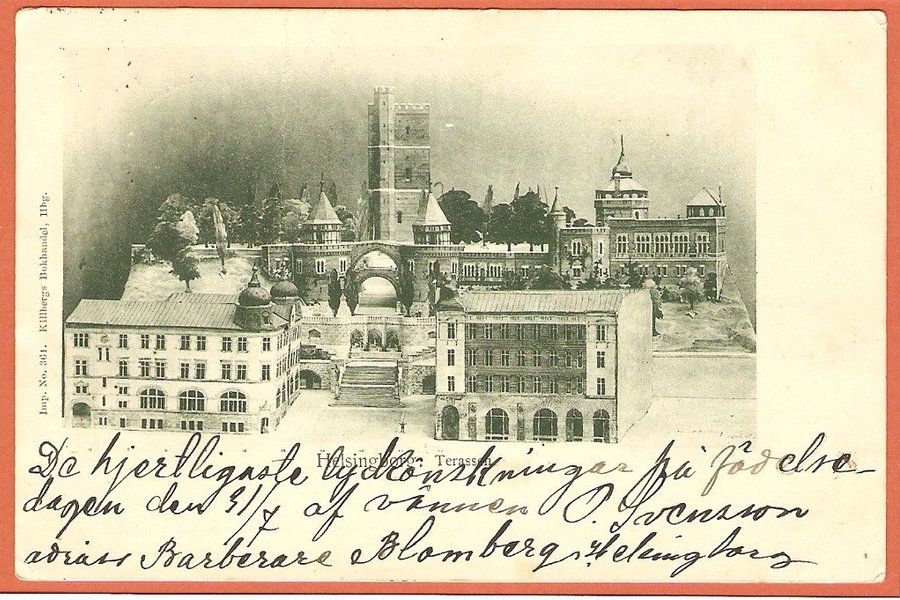 Imp. No. 361. Killbergs Bokhandel, Hbg.
Helsingborg. Terassen
De hjertligaste lyckönskningar på födelse-
dagen den 31/7 af vännen P. Svensson
adriass Barberare Blomberg Helsingborg